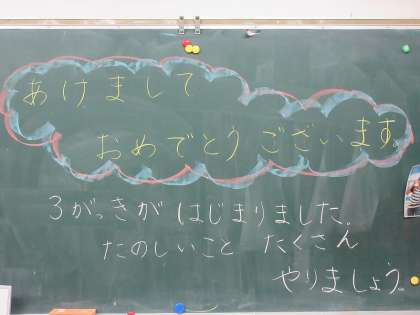 あけまして
おめでとうございます。
3がっきがはじまりました。
たのしいこと たくさん
やりましょう。